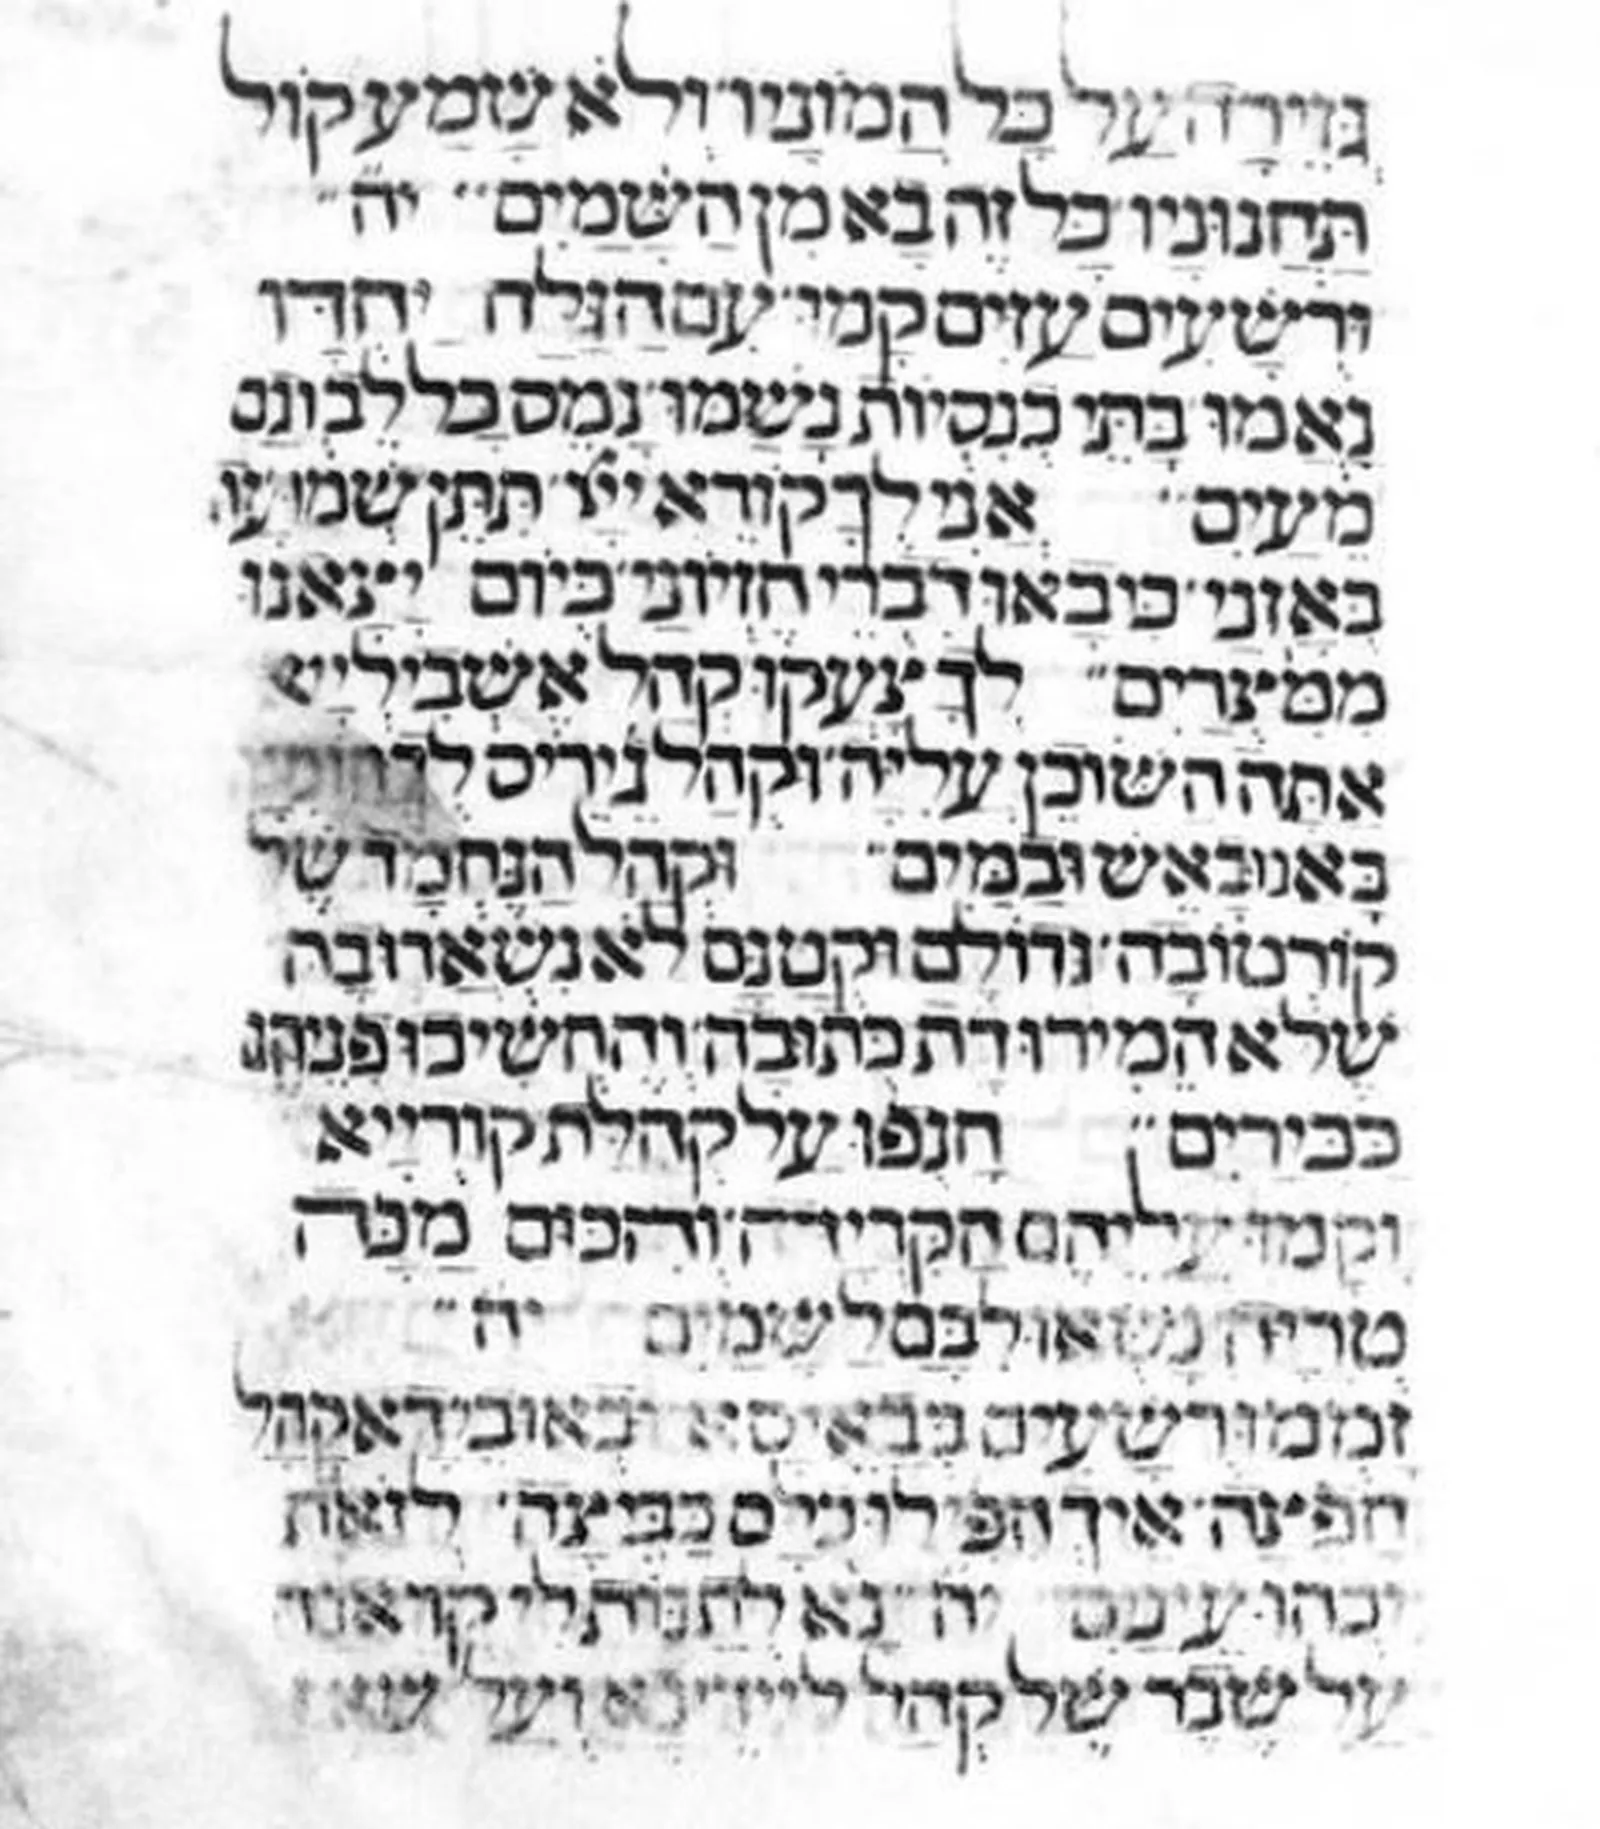 גְּזֵירָה עַל כָּל הֲמוֹנָיו וְלֹא שָׁמַע קוֹל
תַּחֲנוּנָיו כָּל זֶה בָּא מִן הַשָּׁמַיִם״ יה״
וּרְשָׁעִים עַזִּים קָמַי׳ עִם הַגֶּלַח יַחְדָּו
נָאֲמוּ בָּתֵּי כְנֵסִיּוֹת נָשַׁמּוּ׳ נָמֵס כָּל לֵב וְנַם
מֵעַיִם״ אֲנִי לְךָ קוֹרֵא ייָ׳ תִּתֵּן שְׁמוּעָ
בְּאָזְנַי׳ כִּי בָאוּ דִּבְרֵי חֶזְיוֹנַי׳ כְּיוֹם יְצָאָנוּ
מִמִּצְרַיִם״ לְךָ יִצְעֲקוּ קְהַל אִשְׁבִּילְיָיא
אַתָּה הַשּׁוֹכֵן עִלִּיָּה׳ וּקְהַל נֵירִיס
בָּאנוּ בָאֵשׁ וּבַמַּיִם״ וּקְהַל הַנֶּחְמָד שֶׁל
קוֹרְטוֹבָה׳ גְּדוֹלָם וּקְטַנָּם לֹא נִשְׁאַר וּבָהּ
שֶׁלֹּא הֵמִירוּ דָת כְּתוּבָה׳ וְהֶחְשִׁיכוּ פְנֵיהֶן
כַּבִּירִים״ חָנְפוּ עַל קְהִלַּת קוּרְיָיא
וְקָמוּ עֲלֵיהֶם הַקְּרִיָּה׳ וְהִכּוּם מַכָּה
טְרִיָּה נָשְׂאוּ לִבָּם לַשָּׁמַיִם יה״
זָמְמוּ רְשָׁעִים וּבָאוּ קְהַל
חֲפִיצָה׳ אֵיךְ כְּבֵיצָה׳ לָזֹאת
יִכְהוּ עֵינַיִם יה״ נָא לְתַנּוֹת לִי
עַל שֶׁבֶר שֶׁל קְהַל וְעַל